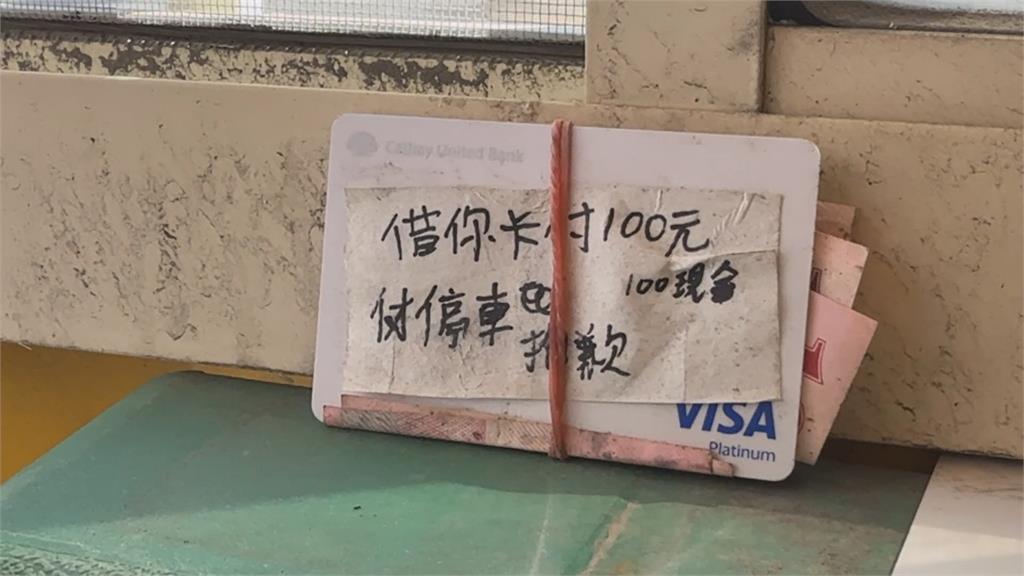 Cathay United Bank
借你卡付100元
100現金
付停車
抱歉
VISA
Platinum